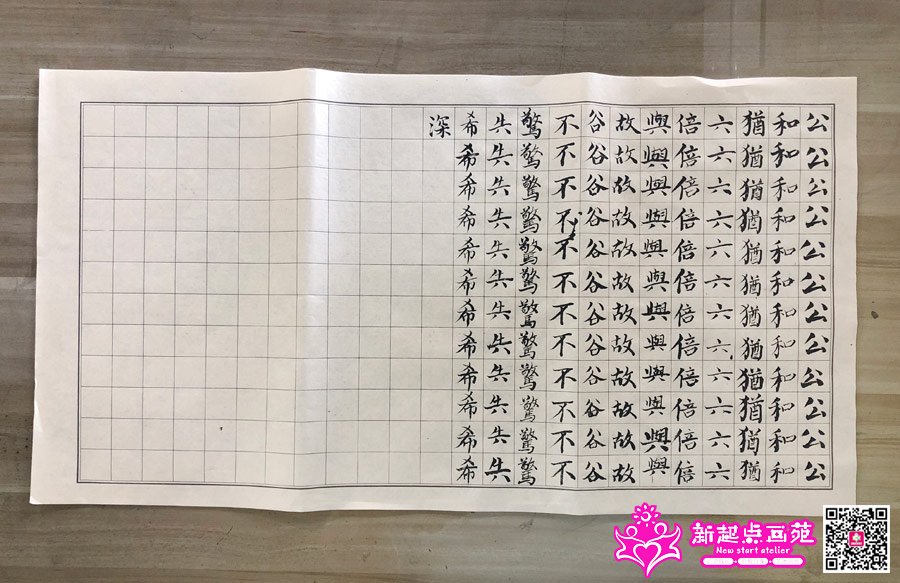 公公公公公公公公公公公公
和和和和和和和和和和和和
猶猶猶猶猶猶猶猶猶猶猶猶
六六六六六六六六六六六六
倍倍倍倍倍倍倍倍倍倍倍倍
與與與與與與與與與與與與
故故故故故故故故故故故故
谷谷谷谷谷谷谷谷谷谷谷谷
不不不不不不不不不不不不
驚驚驚驚驚驚驚驚驚驚驚驚
失失失失失失失失失失失失
希希希希希希希希希希希希
深
新起点画苑
New start atelier